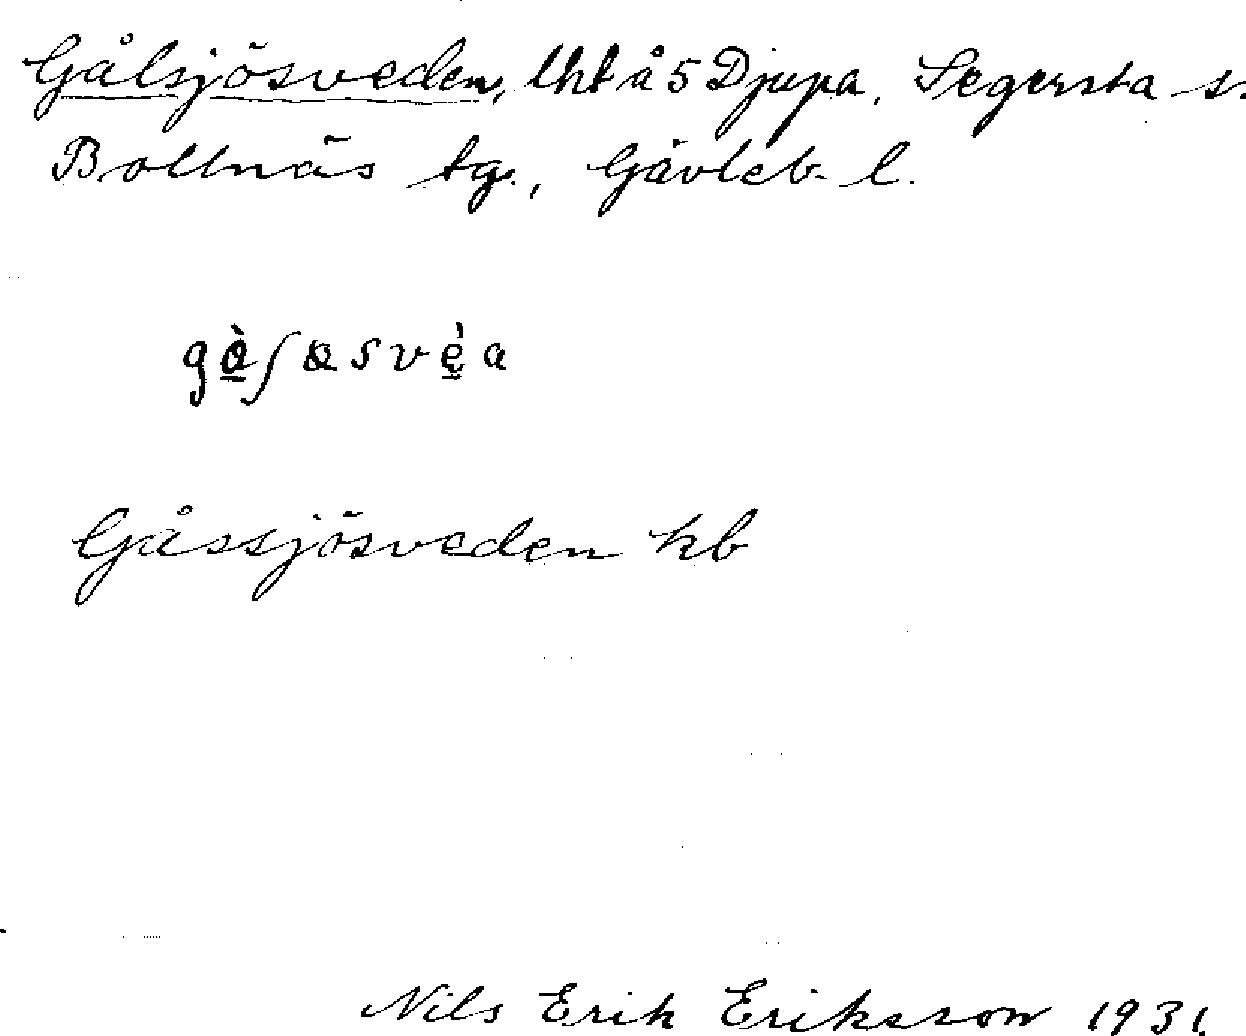 Gålsjösveden, lht å 5 Djupa, Segersta s.
Bollnäs tg., Gävleb. l.
Gåssjösveden kb
Nils Erik Eriksson 1931.